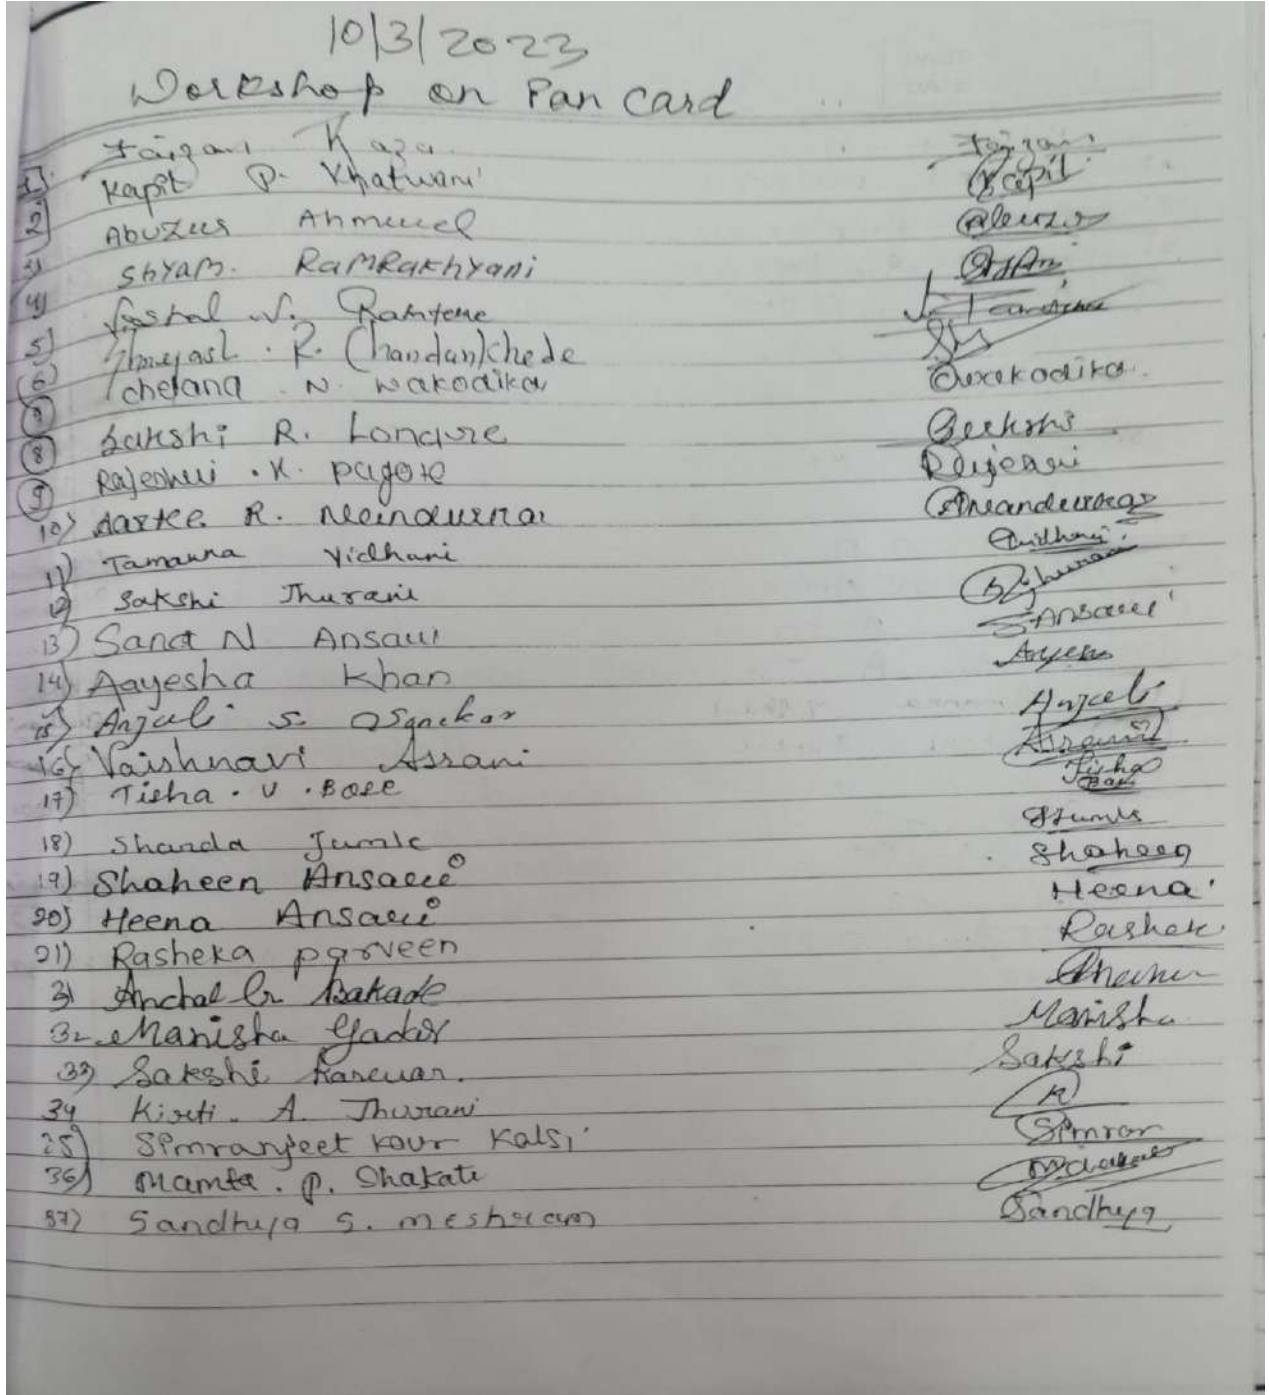 10/3/2023
Workshop on Pan Card
Faizan Raza Faizan
1) Kapil P. Khatwani Kapil
2) Abuzar Ahmed
3) Shyam. RamRakhyani
4) Vishal N. Ramteke
5) R. Chandankhede
6) Chetana N. Wakodikar Cwakodikar
8 Sakshi R. Londure Sakshi
9 Rajeshwi . K. Pagore Rajeswi
10) Aartee R. Neandurkar
11) Tamanna Vidhani
12) Sakshi Thurani
13) Sana N Ansari S Ansari
14) Aayesha Khan Aayesha
15) Anjali S. Anjali
16) Vaishnavi Asrani Asrani
17) Tisha . V . Bole Tisha
18) Sharda Jumle SJumle
19) Shaheen Ansari Shaheen
20) Heena Ansari Heena
21) Rasheka parveen Rashek
31 Anchal G Bakade
32 Manisha Yadav Manisha
33) Sakshi Karewar. Sakshi
34 Kirti. A. Thurani K
35) Simranjeet Kour Kalsi Simran
36) Mamta. P. Shakate
37) Sandhya S. meshram Sandhya